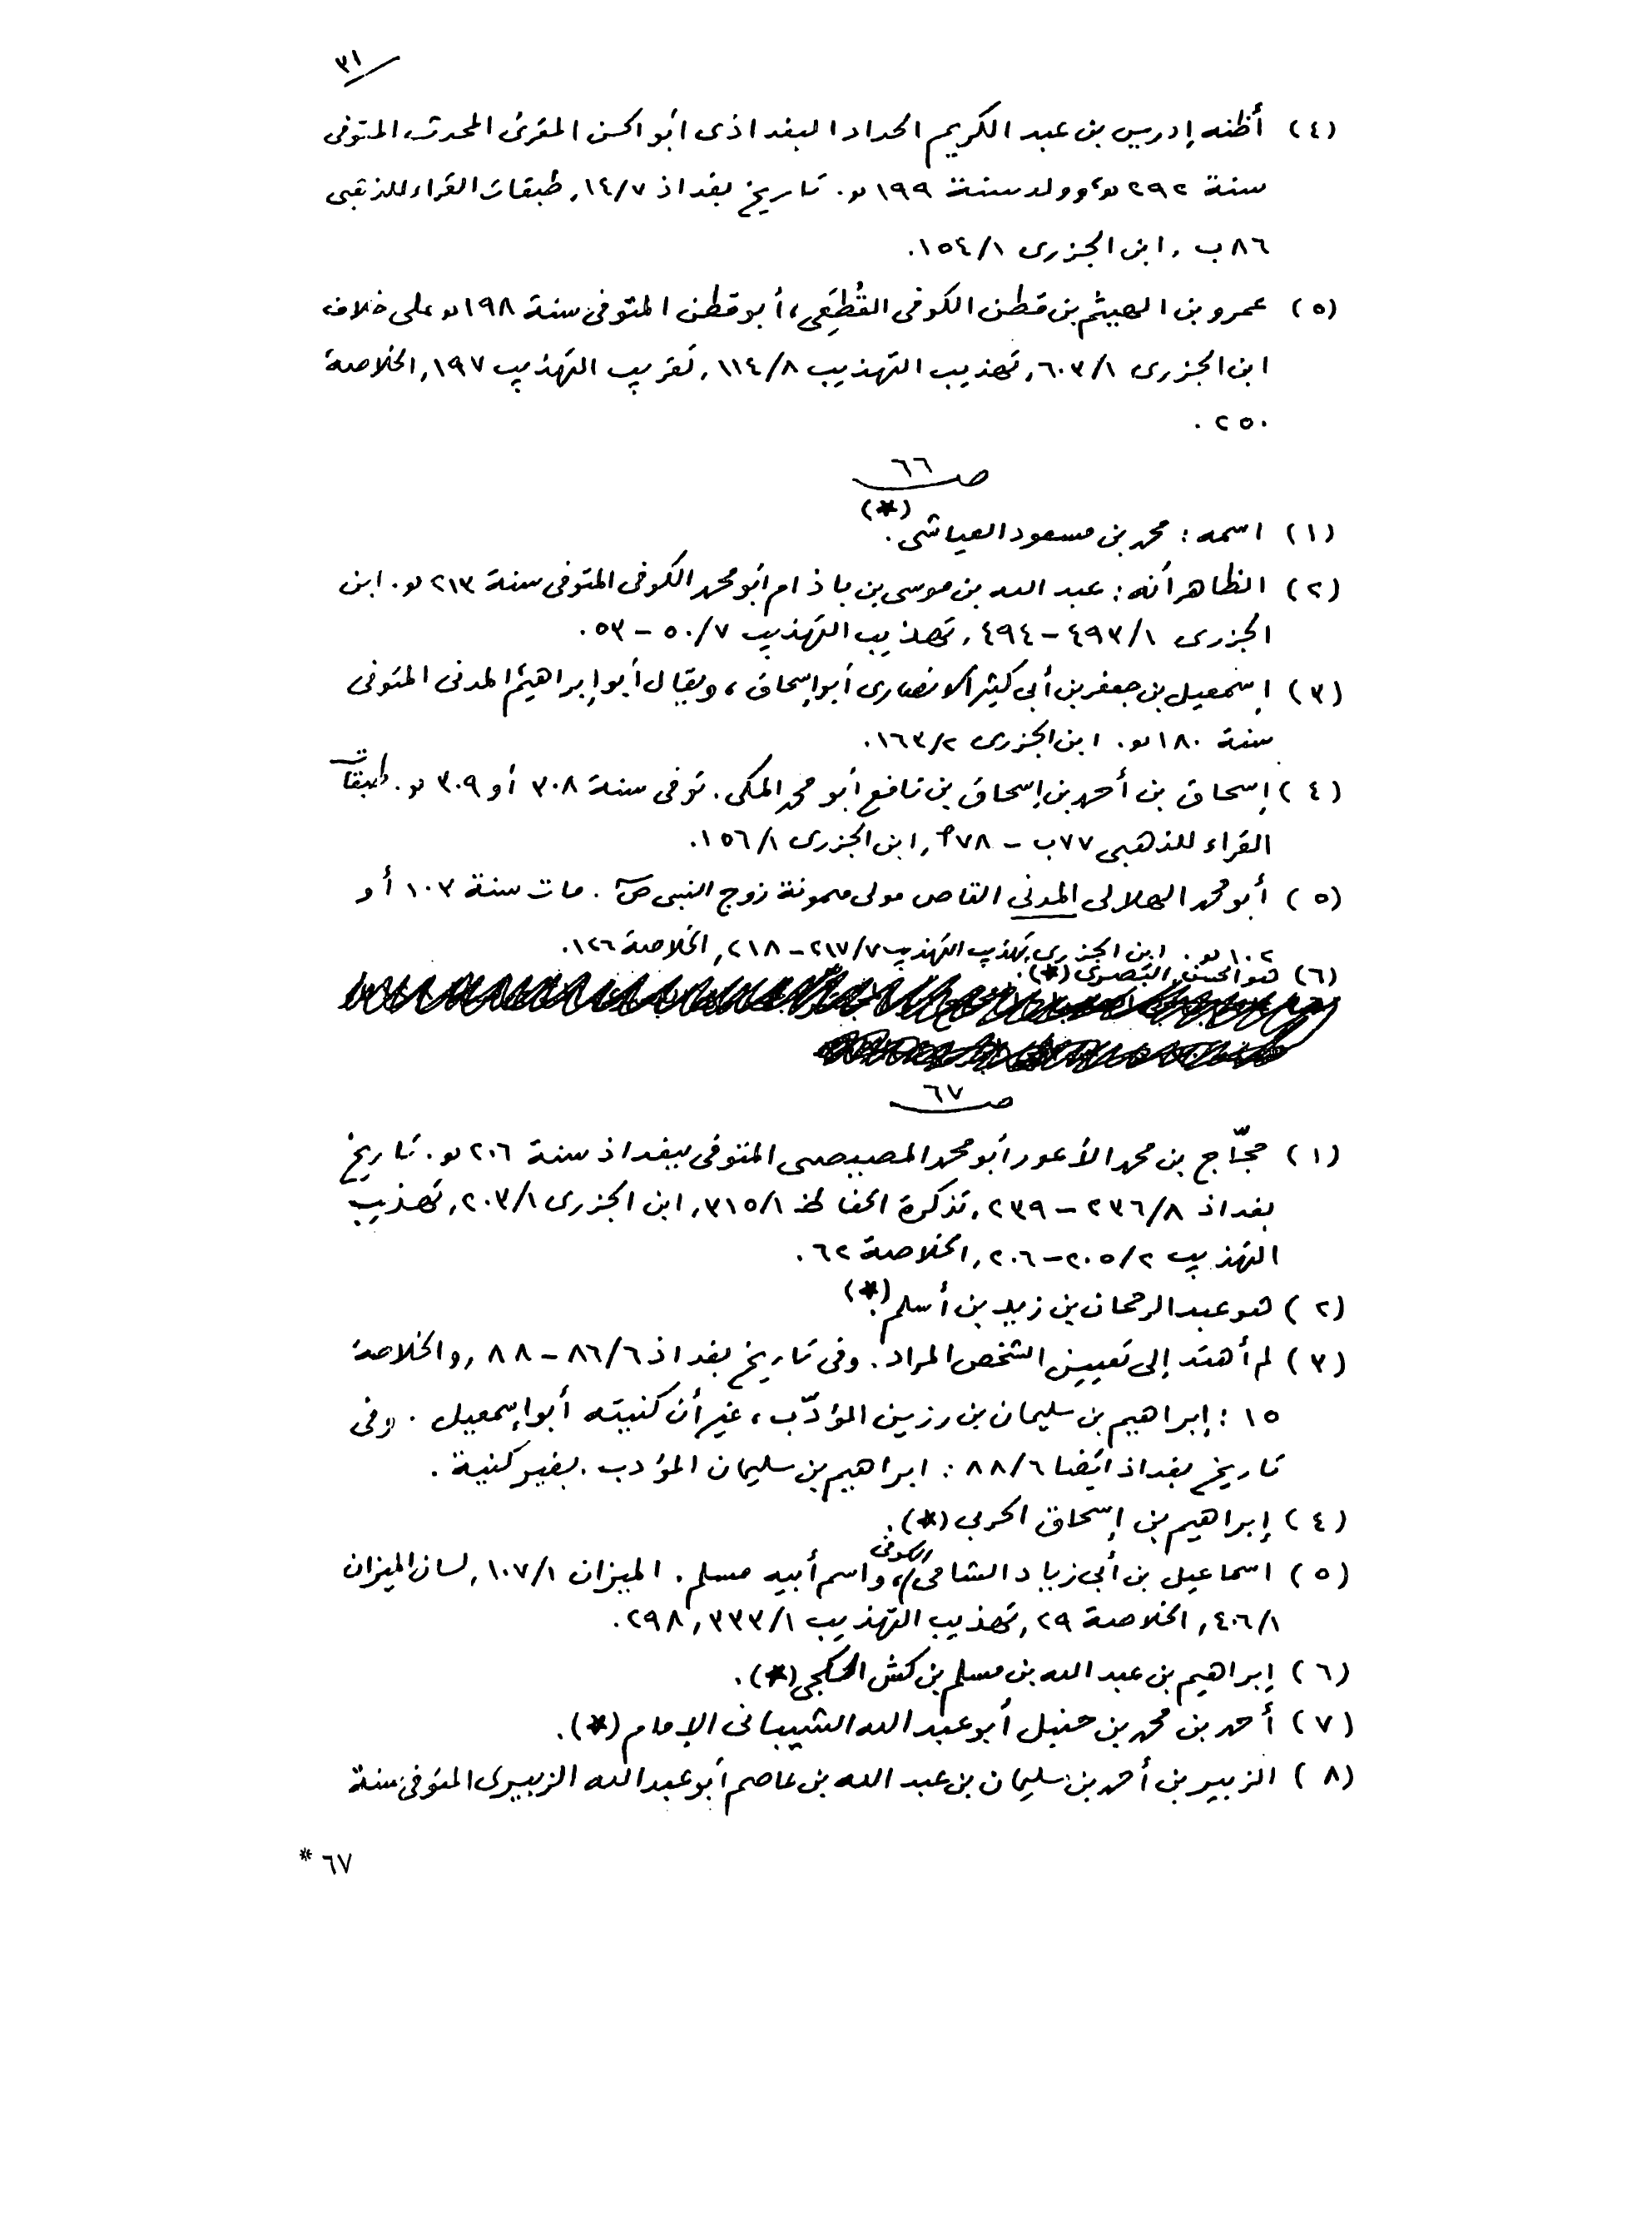 ٣١
(٤) أظنه إدريس بن عبد الكريم الحداد البغداذى أبو الحسن المقرئ المحدث المتوفى
سنة ٢٩٢ هـ، وولد سنة ١٩٩ هـ. تاريخ بغداذ ١٤/٧, طبقات القراء للذهبى
٨٦ ب , ابن الجزرى ١٥٤/١.
(٥) عمرو بن الهيثم بن قطن الكوفى القُطَعِى، أبو قطن المتوفى سنة ١٩٨ هـ على خلاف
ابن الجزرى ٦٠٣/١, تهذيب التهذيب ١١٤/٨, تقريب التهذيب ١٩٧, الخلاصة
٢٥٠ .
ص ٦٦
(١) اسمه : محمد بن مسعود العياشى(*).
(٢) الظاهر أنه : عبد الله بن موسى بن باذام أبو محمد الكوفى المتوفى سنة ٢١٣ هـ. ابن
الجزرى ٤٩٣/١ - ٤٩٤, تهذيب التهذيب ٥٠/٧ - ٥٣.
(٣) إسمعيل بن جعفر بن أبى كثير الانصارى أبو إسحاق، ويقال أبو إبراهيم المدنى المتوفى
سنة ١٨٠ هـ. ابن الجزرى ١٦٣/٢.
(٤) إسحاق بن أحمد بن إسحاق بن نافع أبو محمد المكى. توفى سنة ٣٠٨ أو ٣٠٩ هـ. طبقات
القراء للذهبى ٧٧ب - ٧٨أ, ابن الجزرى ١٥٦/١.
(٥) أبو محمد الهلالى المدنى القاص مولى ميمونة زوج النبى ص. مات سنة ١٠٣ أو
١٠٢ هـ. ابن الجزرى, تهذيب التهذيب ٢١٧/٧ - ٢١٨, الخلاصة ١٢٦.
(٦) هو الحسن البصرى (*).
ص ٦٧
(١) حجّاج بن محمد الأعور أبو محمد المصيصى المتوفى ببغداذ سنة ٢٠٦ هـ. تاريخ
بغداذ ٢٣٦/٨ - ٢٣٩, تذكرة الحفاظ ٣١٥/١, ابن الجزرى ٢٠٣/١, تهذيب
التهذيب ٢٠٥/٢ - ٢٠٦, الخلاصة ٦٢.
(٢) هو عبد الرحمان بن زيد بن أسلم(*).
(٣) لم أهتد إلى تعيين الشخص المراد. وفى تاريخ بغداذ ٨٦/٦ - ٨٨, والخلاصة
١٥ : إبراهيم بن سليمان بن رزين المؤدّب، غير أن كنيته أبو إسمعيل. وفى
تاريخ بغداذ ايضا ٨٨/٦ : ابراهيم بن سليمان المؤدب. بغير كنية.
(٤) إبراهيم بن إسحاق الحربى (*).
(٥) اسماعيل بن أبى زياد الشامى/الكوفى، واسم أبيه مسلم. الميزان ١٠٧/١, لسان الميزان
٤٠٦/١, الخلاصة ٢٩, تهذيب التهذيب ٣٣٣/١, ٢٩٨.
(٦) إبراهيم بن عبد الله بن مسلم بن كش الكجى (*).
(٧) أحمد بن محمد بن حنبل أبو عبد الله الشيبانى الإمام (*).
(٨) الزبير بن أحمد بن سليمان بن عبد الله بن عاصم أبو عبد الله الزبيرى المتوفى سنة
٦٧ *